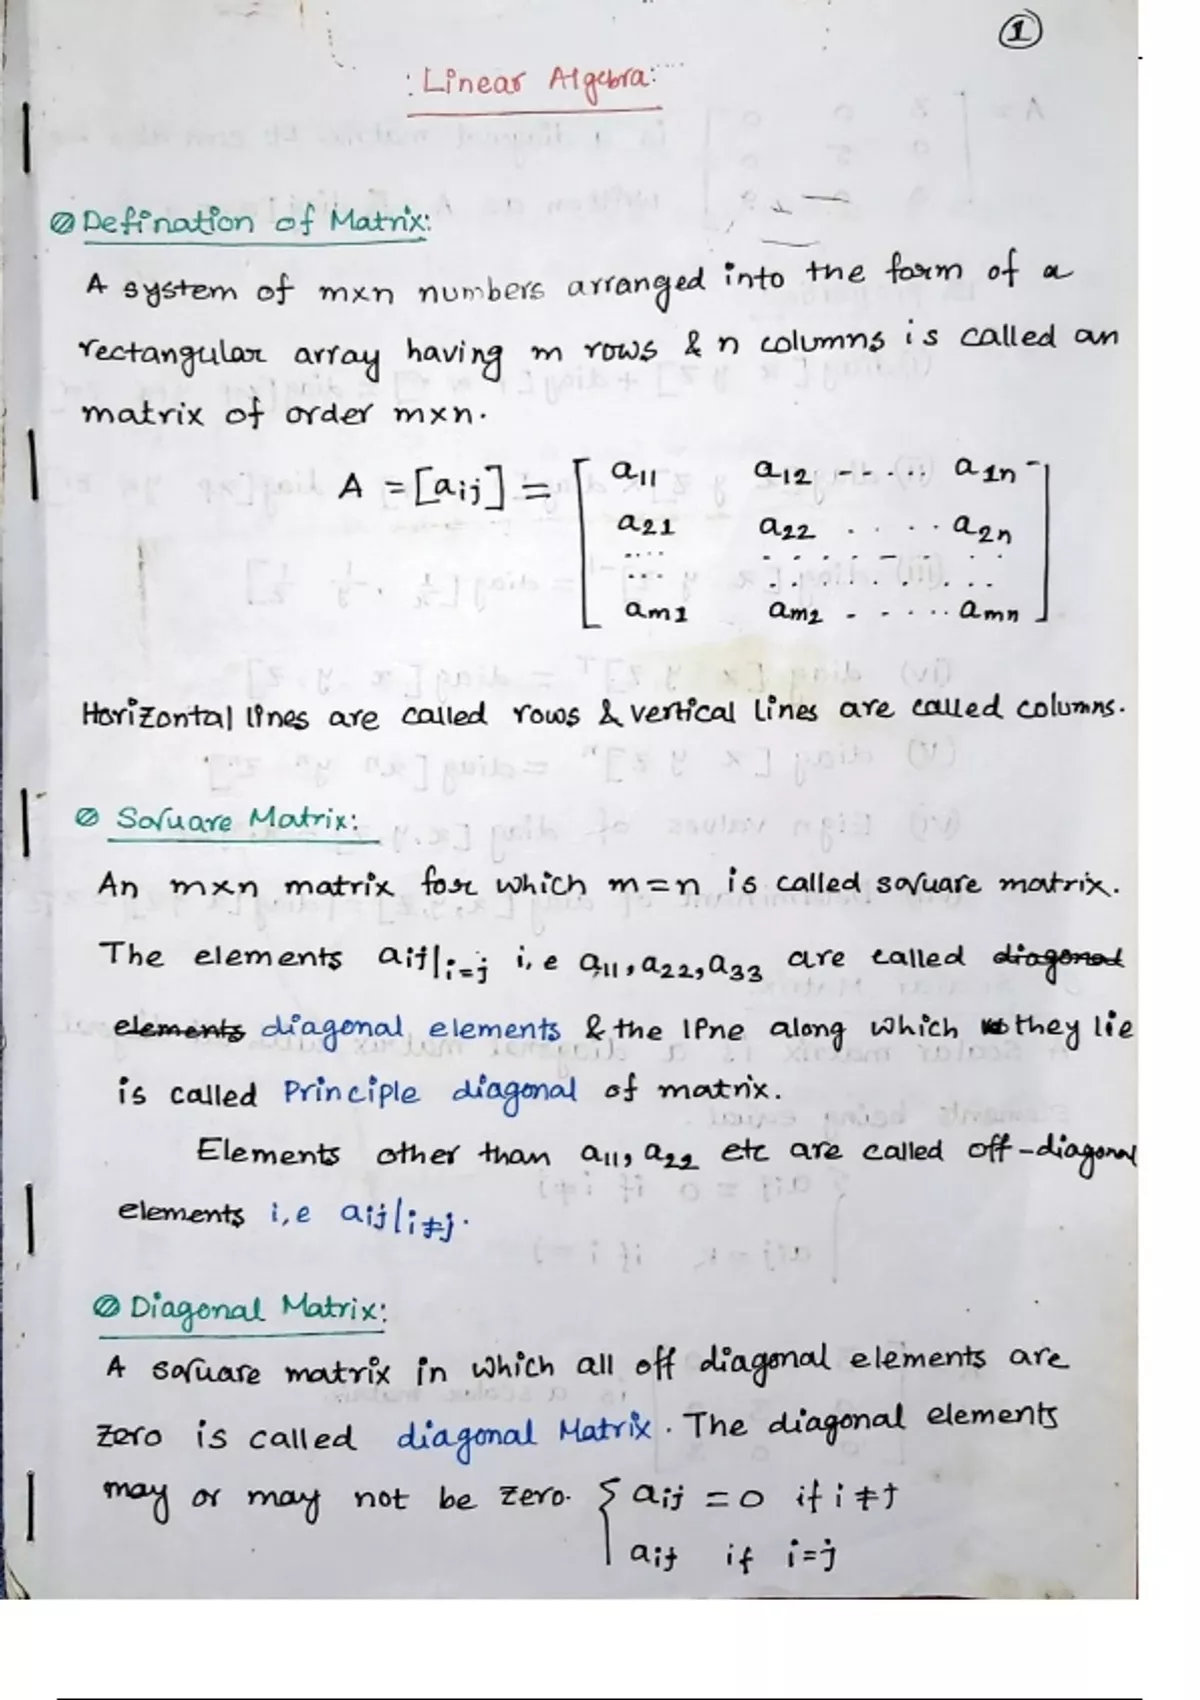 1
: Linear Algebra:
Defination of Matrix:
A system of m×n numbers arranged into the form of a
rectangular array having m rows & n columns is called an
matrix of order m×n.
A = [aij] = [ a11 a12 ----.. a1n
a21 a22 . . . . a2n
.... . . . . . – . . .
... . . . . . . . . .
am1 am2 - - .... amn ]
Horizontal lines are called rows & vertical lines are called columns.
Square Matrix:
An m×n matrix for which m=n is called square matrix.
The elements aij|i=j i,e a11, a22, a33 are called diagonal
elements diagonal elements & the line along which they lie
is called Principle diagonal of matrix.
Elements other than a11, a22 etc are called off-diagonal
elements i,e aij|i≠j.
Diagonal Matrix:
A square matrix in which all off diagonal elements are
zero is called diagonal Matrix. The diagonal elements
may or may not be zero. { aij = 0 if i≠j
aij if i=j